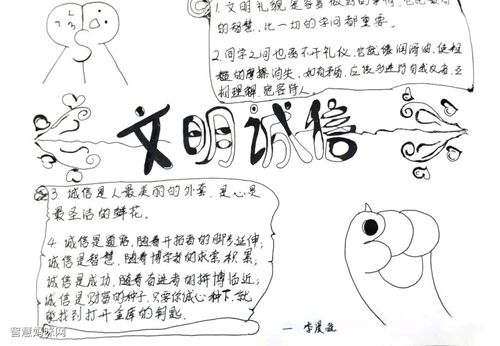 1. 文明礼貌是容易做到的事情，它比最高
的智慧，比一切的学问都重要。
2. 同学之间也离不开礼仪，它就像润滑油，使
的摩擦消失，如有矛盾，应该多进行自我反省，互
相理解，宽容待人。
文明诚信
3. 诚信是人最美丽的外套，是心灵
最圣洁的鲜花。
4. 诚信是道路，随着开拓者的脚步延伸；
诚信是智慧，随着博学者的求索积累；
诚信是成功，随着奋进者的拼搏临近；
诚信是财富的种子，只要你诚心种下，就
能找到打开金库的钥匙。
智慧妈咪网